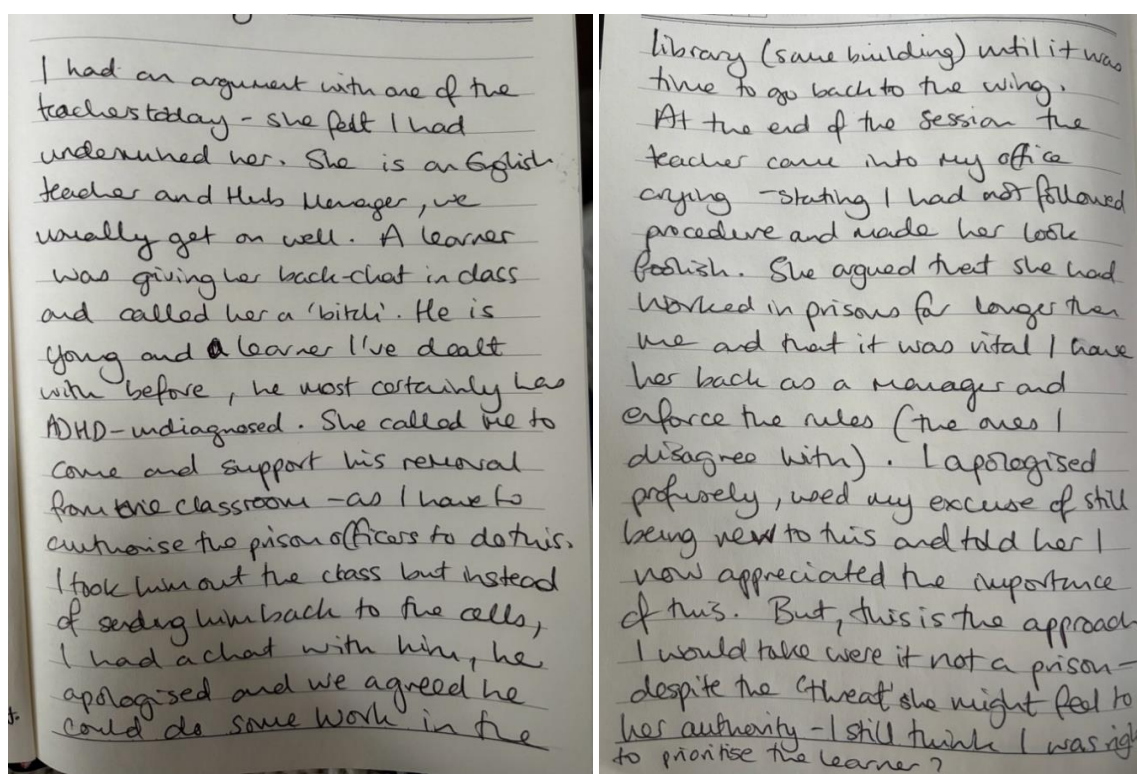 I had an argument with one of the
teachers today - she felt I had
undermined her. She is an English
teacher and Hub Manager, we
usually get on well. A learner
was giving her back-chat in class
and called her a 'bitch'. He is
young and a learner I've dealt
with before, he most certainly has
ADHD - undiagnosed. She called me to
come and support his removal
from the classroom - as I have to
authorise the prison officers to do this.
I took him out the class but instead
of sending him back to the cells,
I had a chat with him, he
apologised and we agreed he
could do some work in the
library (same building) until it was
time to go back to the wing.
At the end of the session the
teacher came into my office
crying - stating I had not followed
procedure and made her look
foolish. She argued that she had
worked in prisons far longer than
me and that it was vital I have
her back as a manager and
enforce the rules (the ones I
disagree with). I apologised
profusely, used my excuse of still
being new to this and told her I
now appreciated the importance
of this. But, this is the approach
I would take were it not a prison -
despite the 'threat' she might feel to
her authority - I still think I was righ
to prioritise the learner?